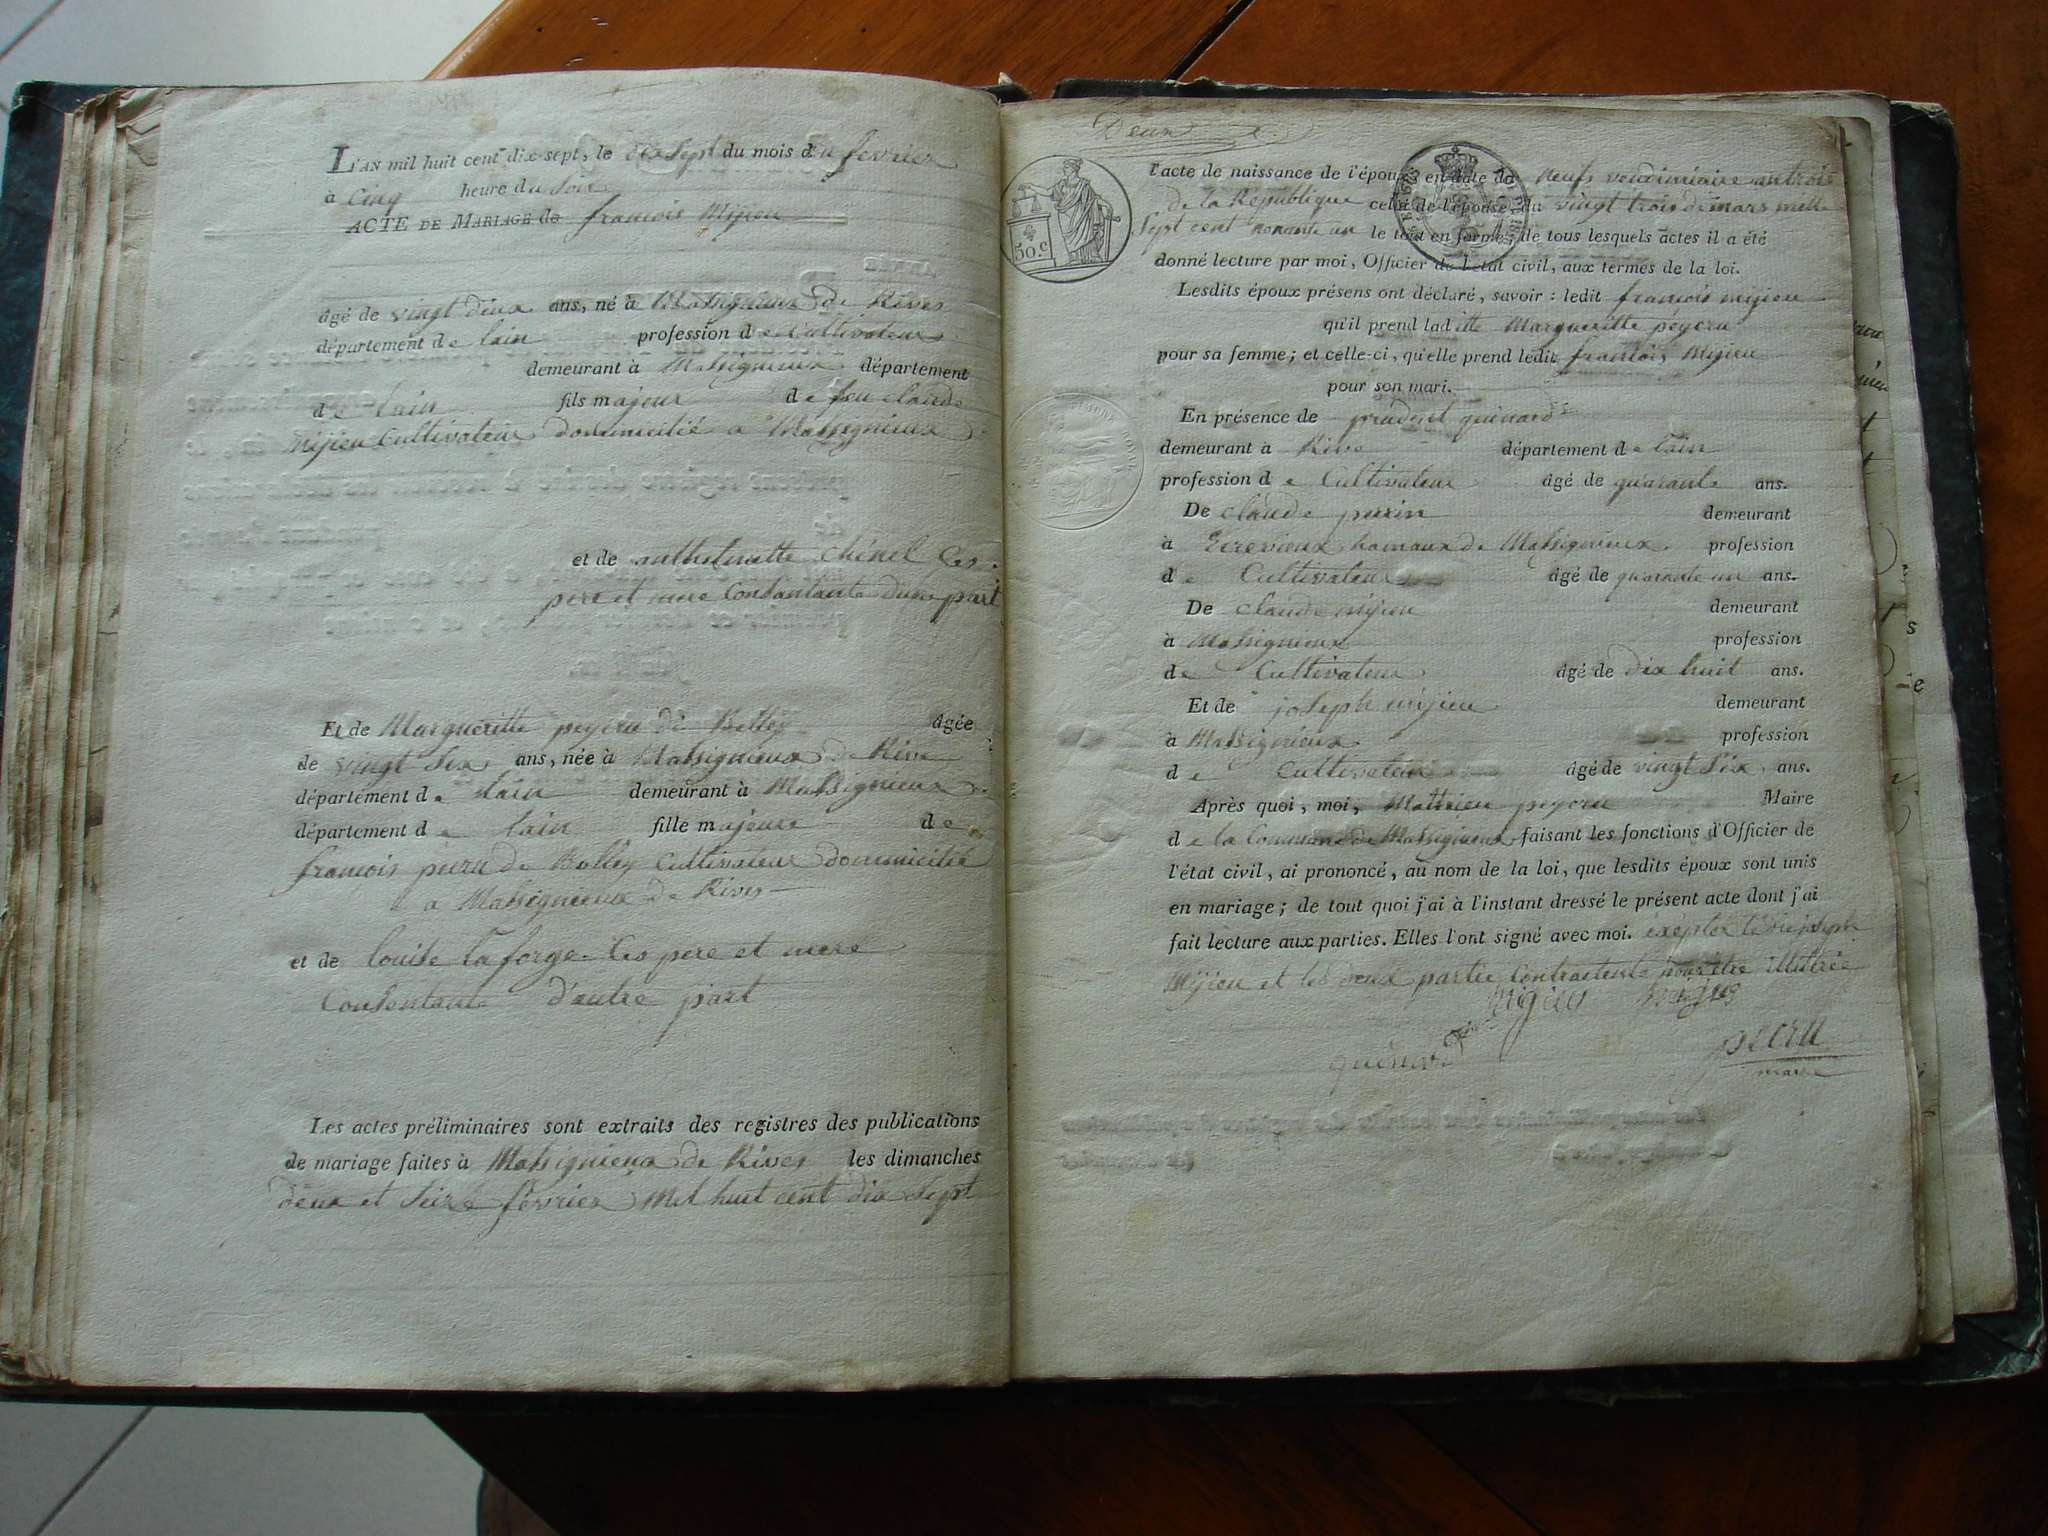 L'AN mil huit cent dix-sept, le dix Sept du mois du fevrier
à Cinq heure du Soir
ACTE DE MARIAGE de francois Mijieu
âgé de vingt deux ans, né à Massignieux de Rives
département de lain profession de Cultivateur
demeurant à Massignieux département
de lain fils majeur de feu claude
Mijieu Cultivateur domicilié a Massignieux
et de anthelmette Chénel Ces
pere et mere Consantante dune part
Et de Margueritte peycru de Belley âgée
de vingt Six ans, née à Massignieux de Rive
département de lain demeurant à Massignieux
département de lain fille majeure de
francois de Belley Cultivateur domicilié
a Massignieux de Rives
et de louise Laforge Ces pere et mere
Consentante d'autre part
Les actes préliminaires sont extraits des registres des publications
de mariage faites à Massignieux de Rives les dimanches
deux et Seize février mil huit cent dix Sept
Deux
50.c
l'acte de naissance de l'époux en date du Neufs vendimiaire an trois
de la République celui de l'épouse du vingt trois de mars mille
Sept cent nonante un le tout en forme; de tous lesquels actes il a été
donné lecture par moi, Officier de l'état civil, aux termes de la loi.
Lesdits époux présens ont déclaré, savoir: ledit francois mijieu
qu'il prend laditte Margueritte péycru
pour sa femme; et celle-ci, qu'elle prend ledit francois Mijieu
pour son mari.
En présence de prudent guinard
demeurant à Rive département de lain
profession de Cultivateur âgé de quarante ans.
De claude perrin demeurant
à Ecrevieux hamaux de Massignieux profession
de Cultivateur âgé de quarante un ans.
De claude mijieu demeurant
à Massignieux profession
de Cultivateur âgé de dix huit ans.
Et de joseph mijieu demeurant
à Massignieux profession
de Cultivateur âgé de vingt Six ans.
Après quoi, moi, Mathieu peycru Maire
de la Commune de Massignieux faisant les fonctions d'Officier de
l'état civil, ai prononcé, au nom de la loi, que lesdits époux sont unis
en mariage; de tout quoi j'ai à l'instant dressé le présent acte dont j'ai
fait lecture aux parties. Elles l'ont signé avec moi. exepter ledit joseph
Mijieu et les deux partie Contractente pour être illitérée
mijieu
guénard
pecru
maire